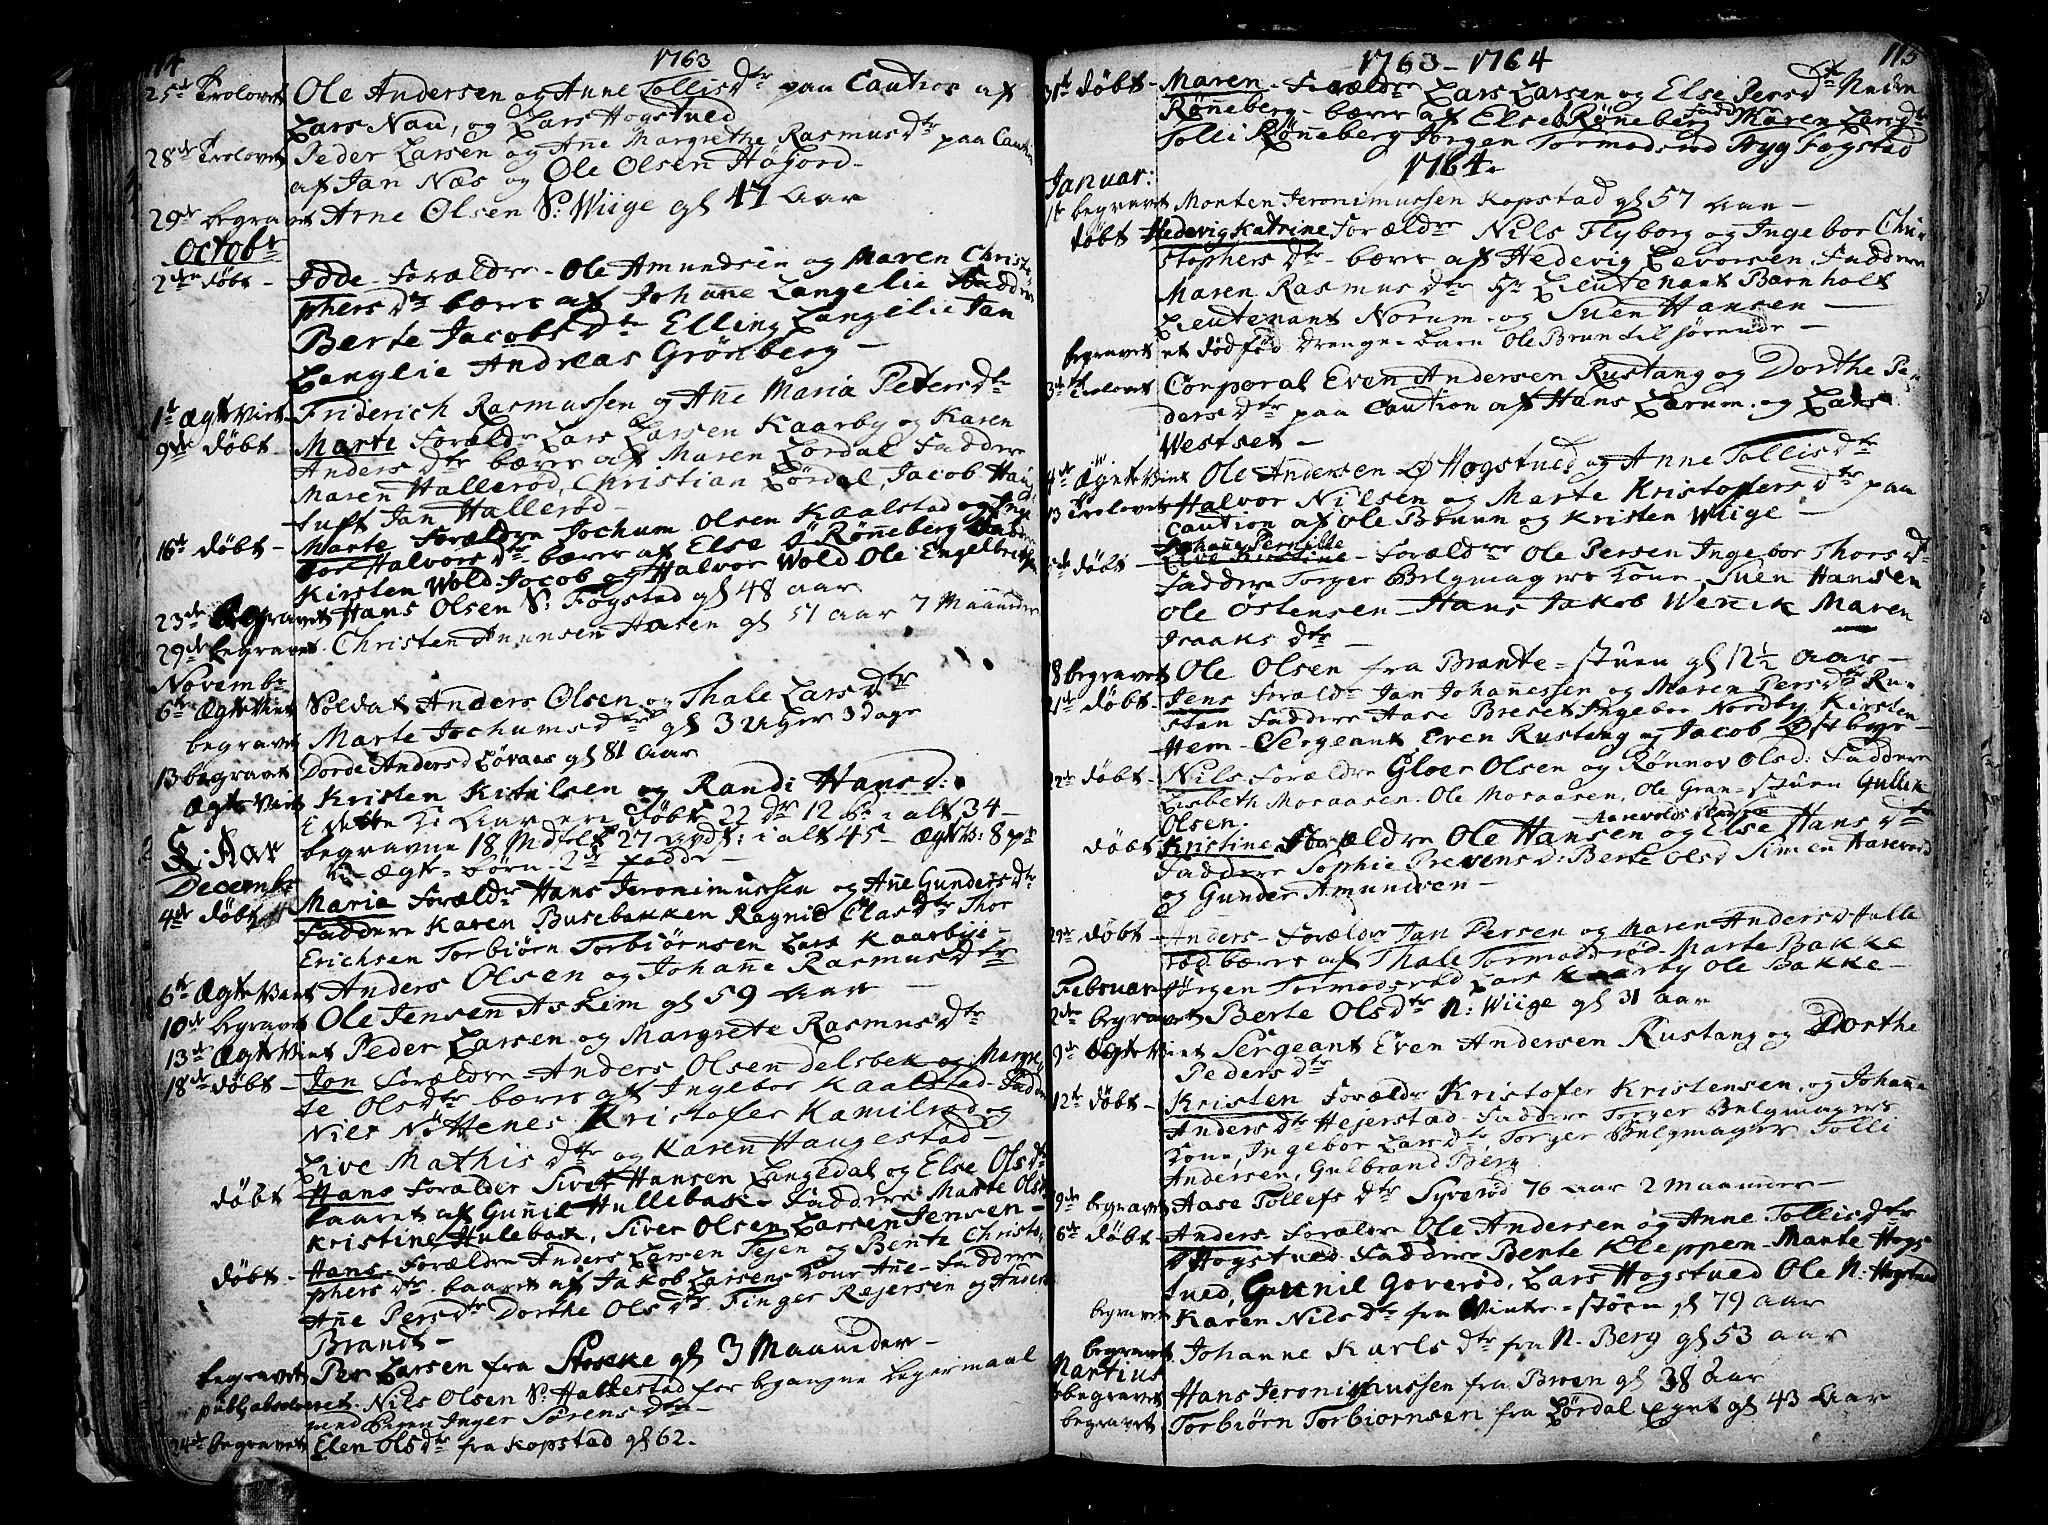 114
1763
25de Trolovet Ole Andersen og Anne Tollisdtr paa Caution af
Lars Nau, og Lars Hogstued
28de Trolovet Peder Larsen og Ane Margrethe Rasmusdtr paa Caution
af Jan Næs og Ole Olsen Høgord
29de begravet Arne Olsen S: Wiige gl 47 Aar
Octobr
2den døbt - Idde - Forældre - Ole Amundsen og Maren Christo
phersdtr bæres af Johanne Langelie Faddere
Berte Jacobsdtr Elling Langelie Jan
Langelie Andreas Grønberg -
1t Ægte Viet Friderich Rasmussen og Ane Maria Petersdtr
9de døbt - Marte Forældr Lars Larsen Kaarby og Karen
Andersdtr bæres af Maren Lørdal Faddere
Maren Hallerød, Christian Lørdal, Jacob Haug
Tuft Jan Hallerød -
16de døbt - Marte Forældre Jochum Olsen Kaalstad og Inge
bor Halvorsdtr bæres af Else Ø Røneberg Faddere
Kirsten Wold Jacob og Halvor Wold Ole Engelbritsen
23de Begravet Hans Olsen S: Fogstad gl 48 aar
29de begravet Christen Anunsen Aasen gl 51 aar 7 Maaneder
Novembr
6te Ægte Viet Soldat Anders Olsen og Thale Larsdtr
begravet Marte Jochumsdtr gl 3 Uger 3 dage
13 begravet Dorde Andersd Løvaas gl 81 Aar
Ægte Viet Kristen Kitilsen og Randi Hansd:
i dette Ki Aar ere døbt 22 dr 12 b i alt 34 -
K: Aar begravne 18 Md 27 qvdt: i alt 45 - Ægt V: 8 p
Decembr
4de døbt Marie Forældr Hans Jeronimussen og Ane Gundersdtr
Faddere Karen Busebakken Ragnid Clasdtr Thor
Erichsen Torbiørn Torbiørnsen Lars Kaarbye -
6te Ægte Viet Anders Olsen og Johane Rasmusdtr
10de begravet Ole Jensen Askim gl 59 Aar -
13de Ægte Viet Peder Larsen og Margrete Rasmusdtr
18de døbt - Jon Forældre - Anders Olsen delsbek og Margre
te Olsdtr bæres af Ingebor Kaalstad - Faddere
Niels Nøttenes Kristofer Kamilrød og
Live Mathisdtr og Karen Haugestad -
døbt Hans Forælder Siver Hansen Langedal og Else Olsdtr
baaret af Gunil Hullebak - Faddere Marte Olsd
Kristine Hulebak, Siver Olsen Larsen Jensen -
døbt - Hans - Forældre Anders Larsen Tejen og Bente Christo
phersdtr baaret af Jakob Larsens Kone Ane - Faddere
Ane Persdtr Dorthe Olsdtr Finger Rejersen og Anders
Brandt -
begravet Per Larsen fra Stokke gl 3 Maaneder -
publ: absolveret. Nils Olsen S: Halkestad for begangne Lejermaal
med Pigen Inger Sørensdtr -
24de begravet Elen Olsdtr fra Kopstad gl 62.
1763 - 1764
115
31te døbt - Maren - Forældre Lars Larsen og Else Persdtr Neden
Røneberg - bæres af Else Røneberg Faddere Maren Larsdtr
Tolli Røneberg Jørgen Tormodsrød Tryg Fogstad
1764.
Januar:
1te begravet Morten Jeronimussen Kopstad gl 57 Aar -
døbt - Hedevig Katrine Forældre Nils Flyborg og Ingebor Chri
stophersdtr - bæres af Hedevig Levorsen Faddere
Maren Rasmusdtr Hr Lieutenant Barnholt
Lieutenant Norum og Suen Hansen -
begravet et dødfød Drenge-barn Ole Brun til hørende -
3de Trolovet Corporal Even Andersen Rustang og Dorthe Pe
dersdtr paa Caution af Hans Lærum og Lars
Westset -
Ægte Viet Ole Andersen Ø Hogstued og Anne Tollisdtr
13 Trolovet Halvor Nilsen og Marte Kristoffersdtr paa
Caution af Ole Bruun og Kristen Wiige -
døbt - Johane Pernille
Forældre Ole Persen Ingebor Thorsd
Faddere Torger Belgmagers Kone - Suen Hansen
Ole Østensen - Hans Jakob Wenik Maren
Isaaksdtr -
18 begravet Ole Olsen fra Brante-stuen gl 12½ Aar -
døbt - Jens Forældr Jan Johanessen og Maren Persdtr Ru
stan Faddere Aase Breset Ingebor Nordby Kirsten
Hem - Sergeant Even Rustang og Jacob Østbye -
22de døbt - Nils - Forældre Gloer Olsen og Rønnov Olsd: Faddere
Lisbeth Moraasen - Ole Moraasen, Ole Gran-stuen Gullik
Olsen.
døbt Kristine Forældre Ole Hansen og Else Hansdtr
Faddere Sophie Prevensd: Berte Olsd Simen Harevold
og Gunder Amundsen -
29de døbt - Anders - Forældr Jan Persen og Maren Andersd Halle
rød bæres af Thale Tormodsrød - Marte Bakke
Februar Jørgen Tormodsrød Lars Kaarby Ole Bakke -
2den begravet Berte Olsdtr N: Wiige gl 31 aar
9de Ægte Viet Sergeant Even Andersen Rustang og Dorthe
Pedersdtr
12te døbt - Kristen Forældr Kristofer Kristensen, og Johane
Andersdtr Hejerstad - Faddere Torger Belgmagers
Kone, Ingebor Larsdtr Torger Belgmager Tolli
Andersen, Gulbrand Berg
19de begravet Aase Tollefsdtr Syverød 76 aar 2 maaneder -
døbt - Anders - Forældre Ole Andersen og Anne Tollisdtr
Ø Hogstued - Faddere Bente Kleppen - Marte Hogs
tued, Gunil Goverød, Lars Hogstued Ole N: Hogstued
begravet Karen Nilsdtr fra Winter-støen gl 79 aar
begravet Johanne Karlsdtr fra N. Berg gl 53 aar
Martius
begravet Hans Jeronimussen fra Broen gl 38 Aar
begravet Torbiørn Torbiørnsen fra Lørdal Egnt gl 43 Aar